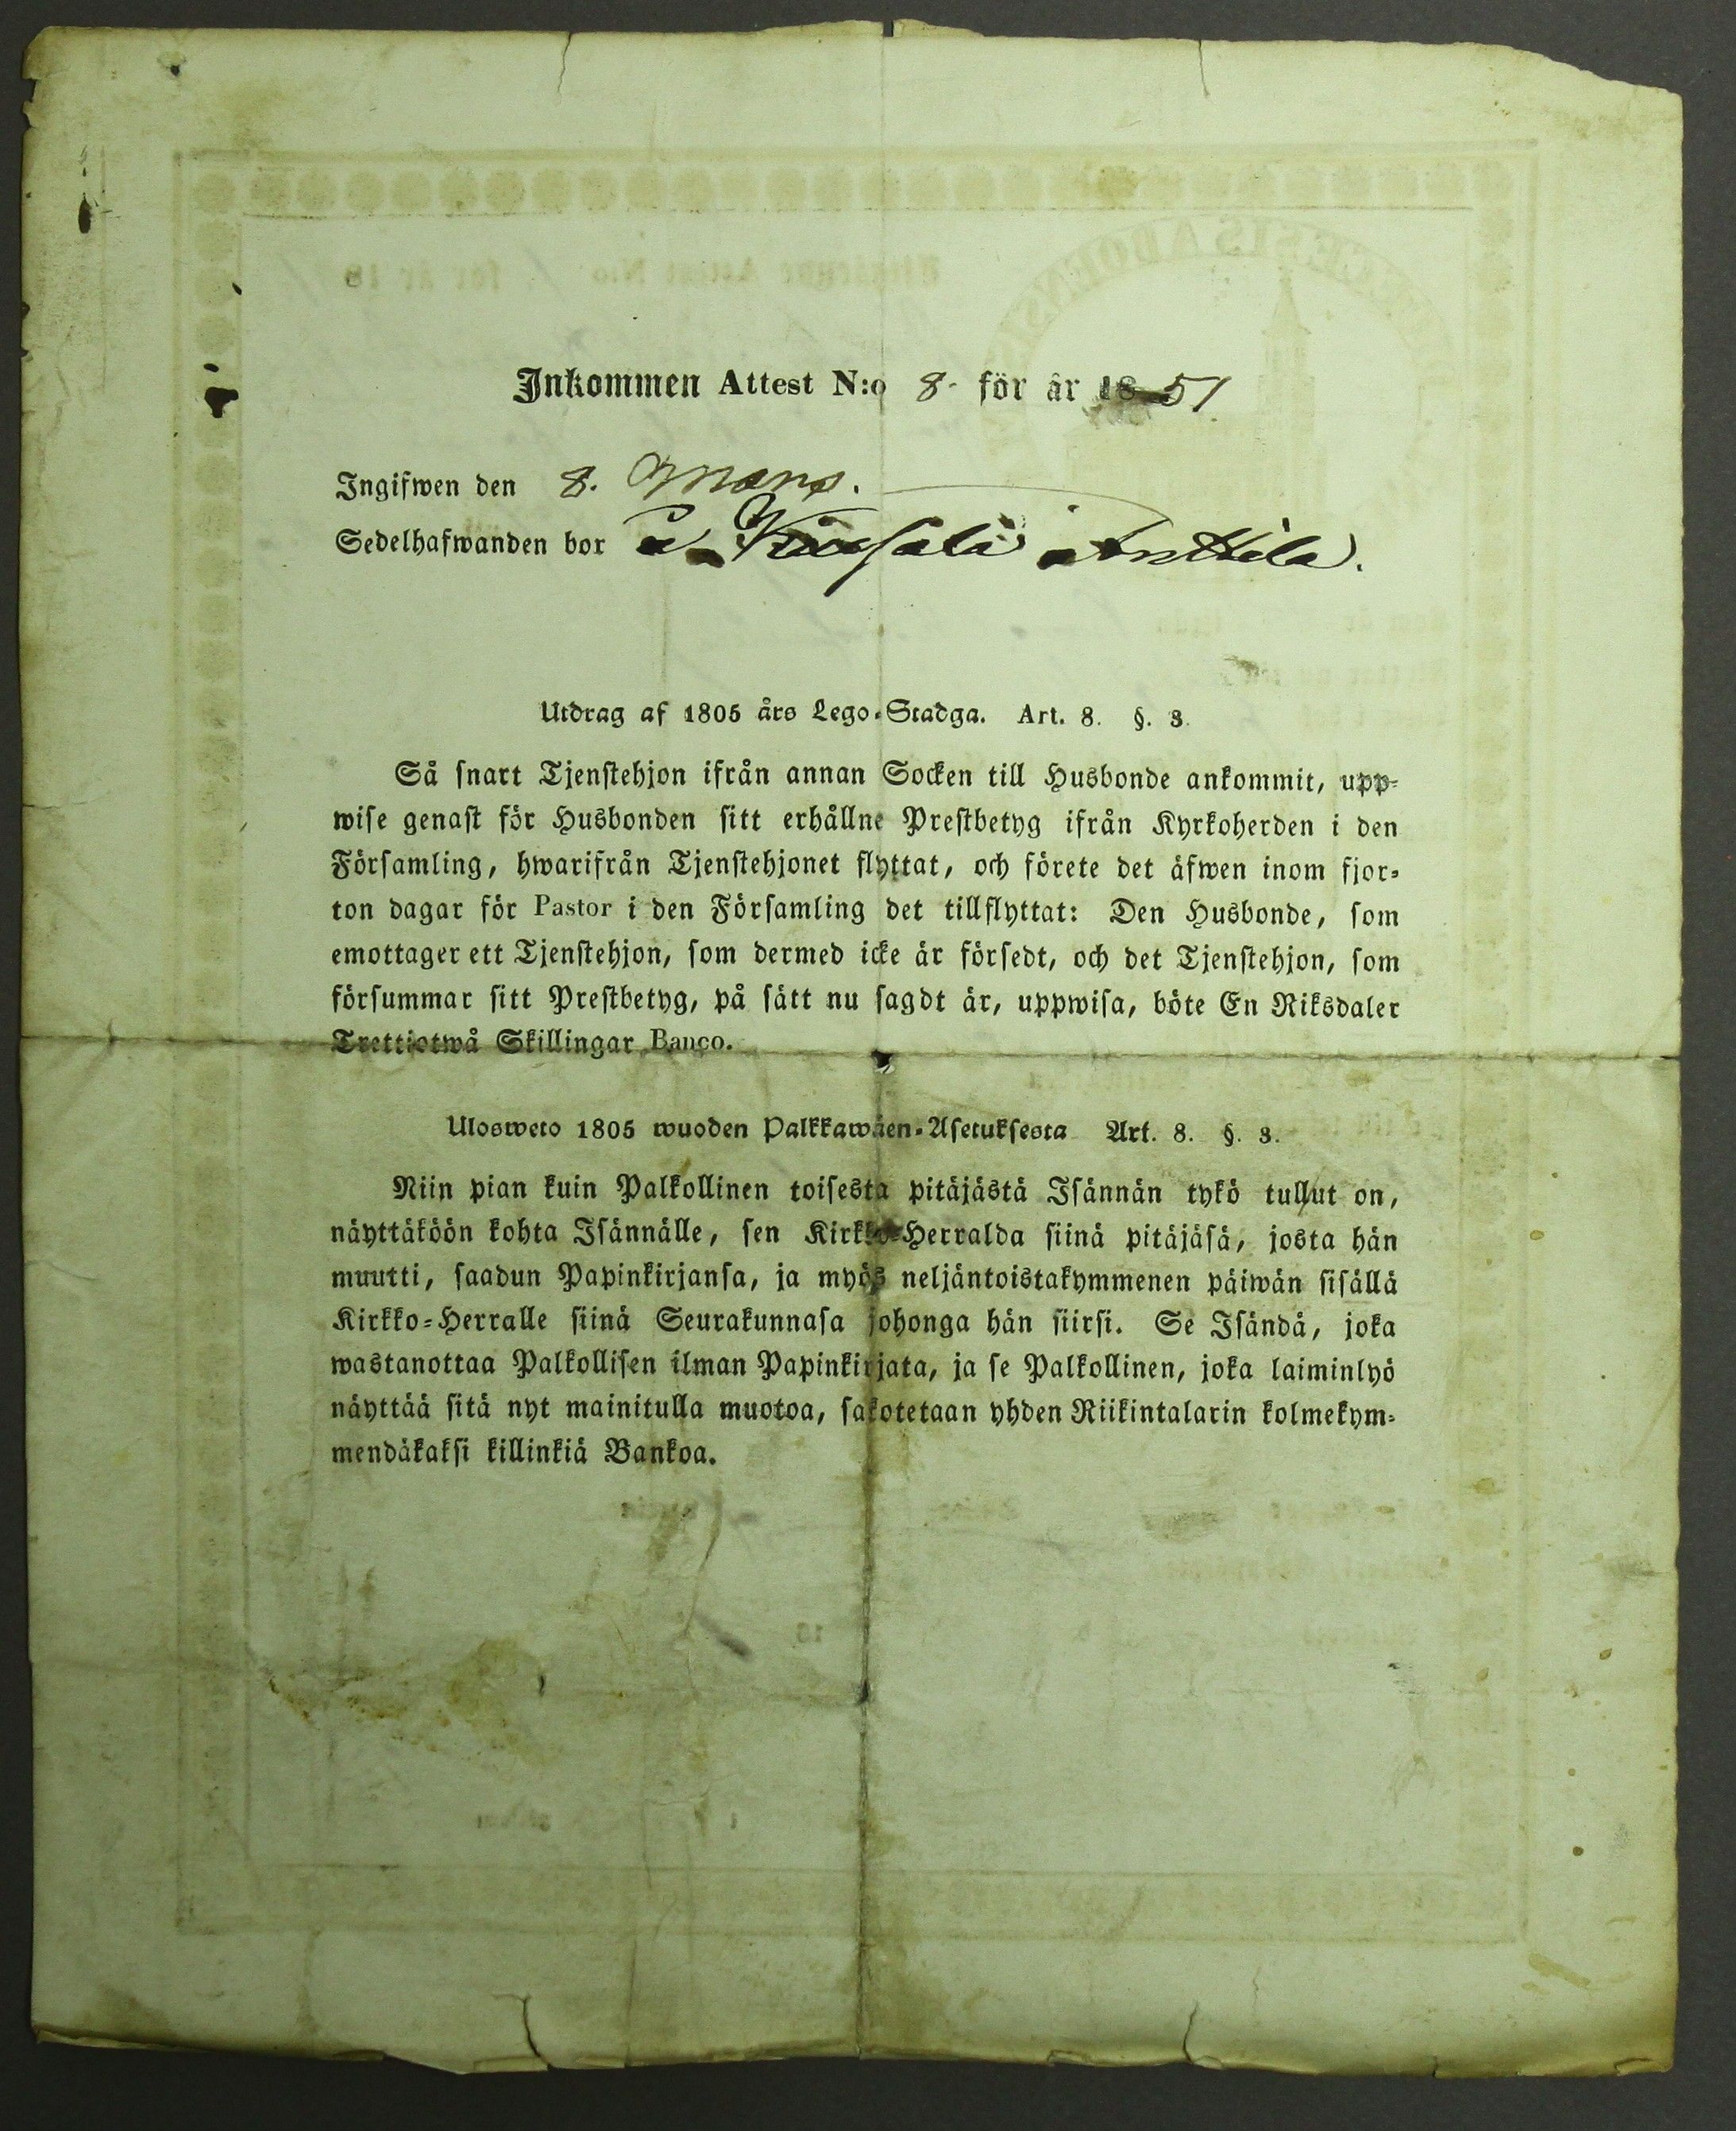 Inkommen Attest N:o 8. för år 1851
Ingifwen den 8. Mars.
Sedelhafwanden bor å Anttila.
Utdrag af 1805 års Lego-Stadga. Art. 8. §. 3.
Så snart Tjenstehjon ifrån annan Socken till Husbonde ankommit, upp-
wise genast för Husbonden sitt erhållne Prestbetyg ifrån Kyrkoherden i den
Församling, hwarifrån Tjenstehjonet flyttat, och förete det äfwen inom fjor-
ton dagar för Pastor i den Församling det tillflyttat: Den Husbonde, som
emottager ett Tjenstehjon, som dermed icke är försedt, och det Tjenstehjon, som
försummar sitt Prestbetyg, på sätt nu sagdt är, uppwisa, böte En Riksdaler
Trettiotwå Skillingar Banco.
Ulosweto 1805 wuoden Palkkawäen-Asetuksesta Art. 8. §. 3.
Niin pian kuin Palkollinen toisesta pitäjästä Isännän tykö tullut on,
näyttäköön kohta Isännälle, sen Kirkko-Herralda siinä pitäjäsä, josta hän
muutti, saadun Papinkirjansa, ja myös neljäntoistakymmenen päiwän sisällä
Kirkko-Herralle siinä Seurakunnasa johonga hän siirsi. Se Isändä, joka
wastanottaa Palkollisen ilman Papinkirjata, ja se Palkollinen, joka laiminlyö
näyttää sitä nyt mainitulla muotoa, sakotetaan yhden Riikintalarin kolmekym-
mendäkaksi killinkiä Bankoa.